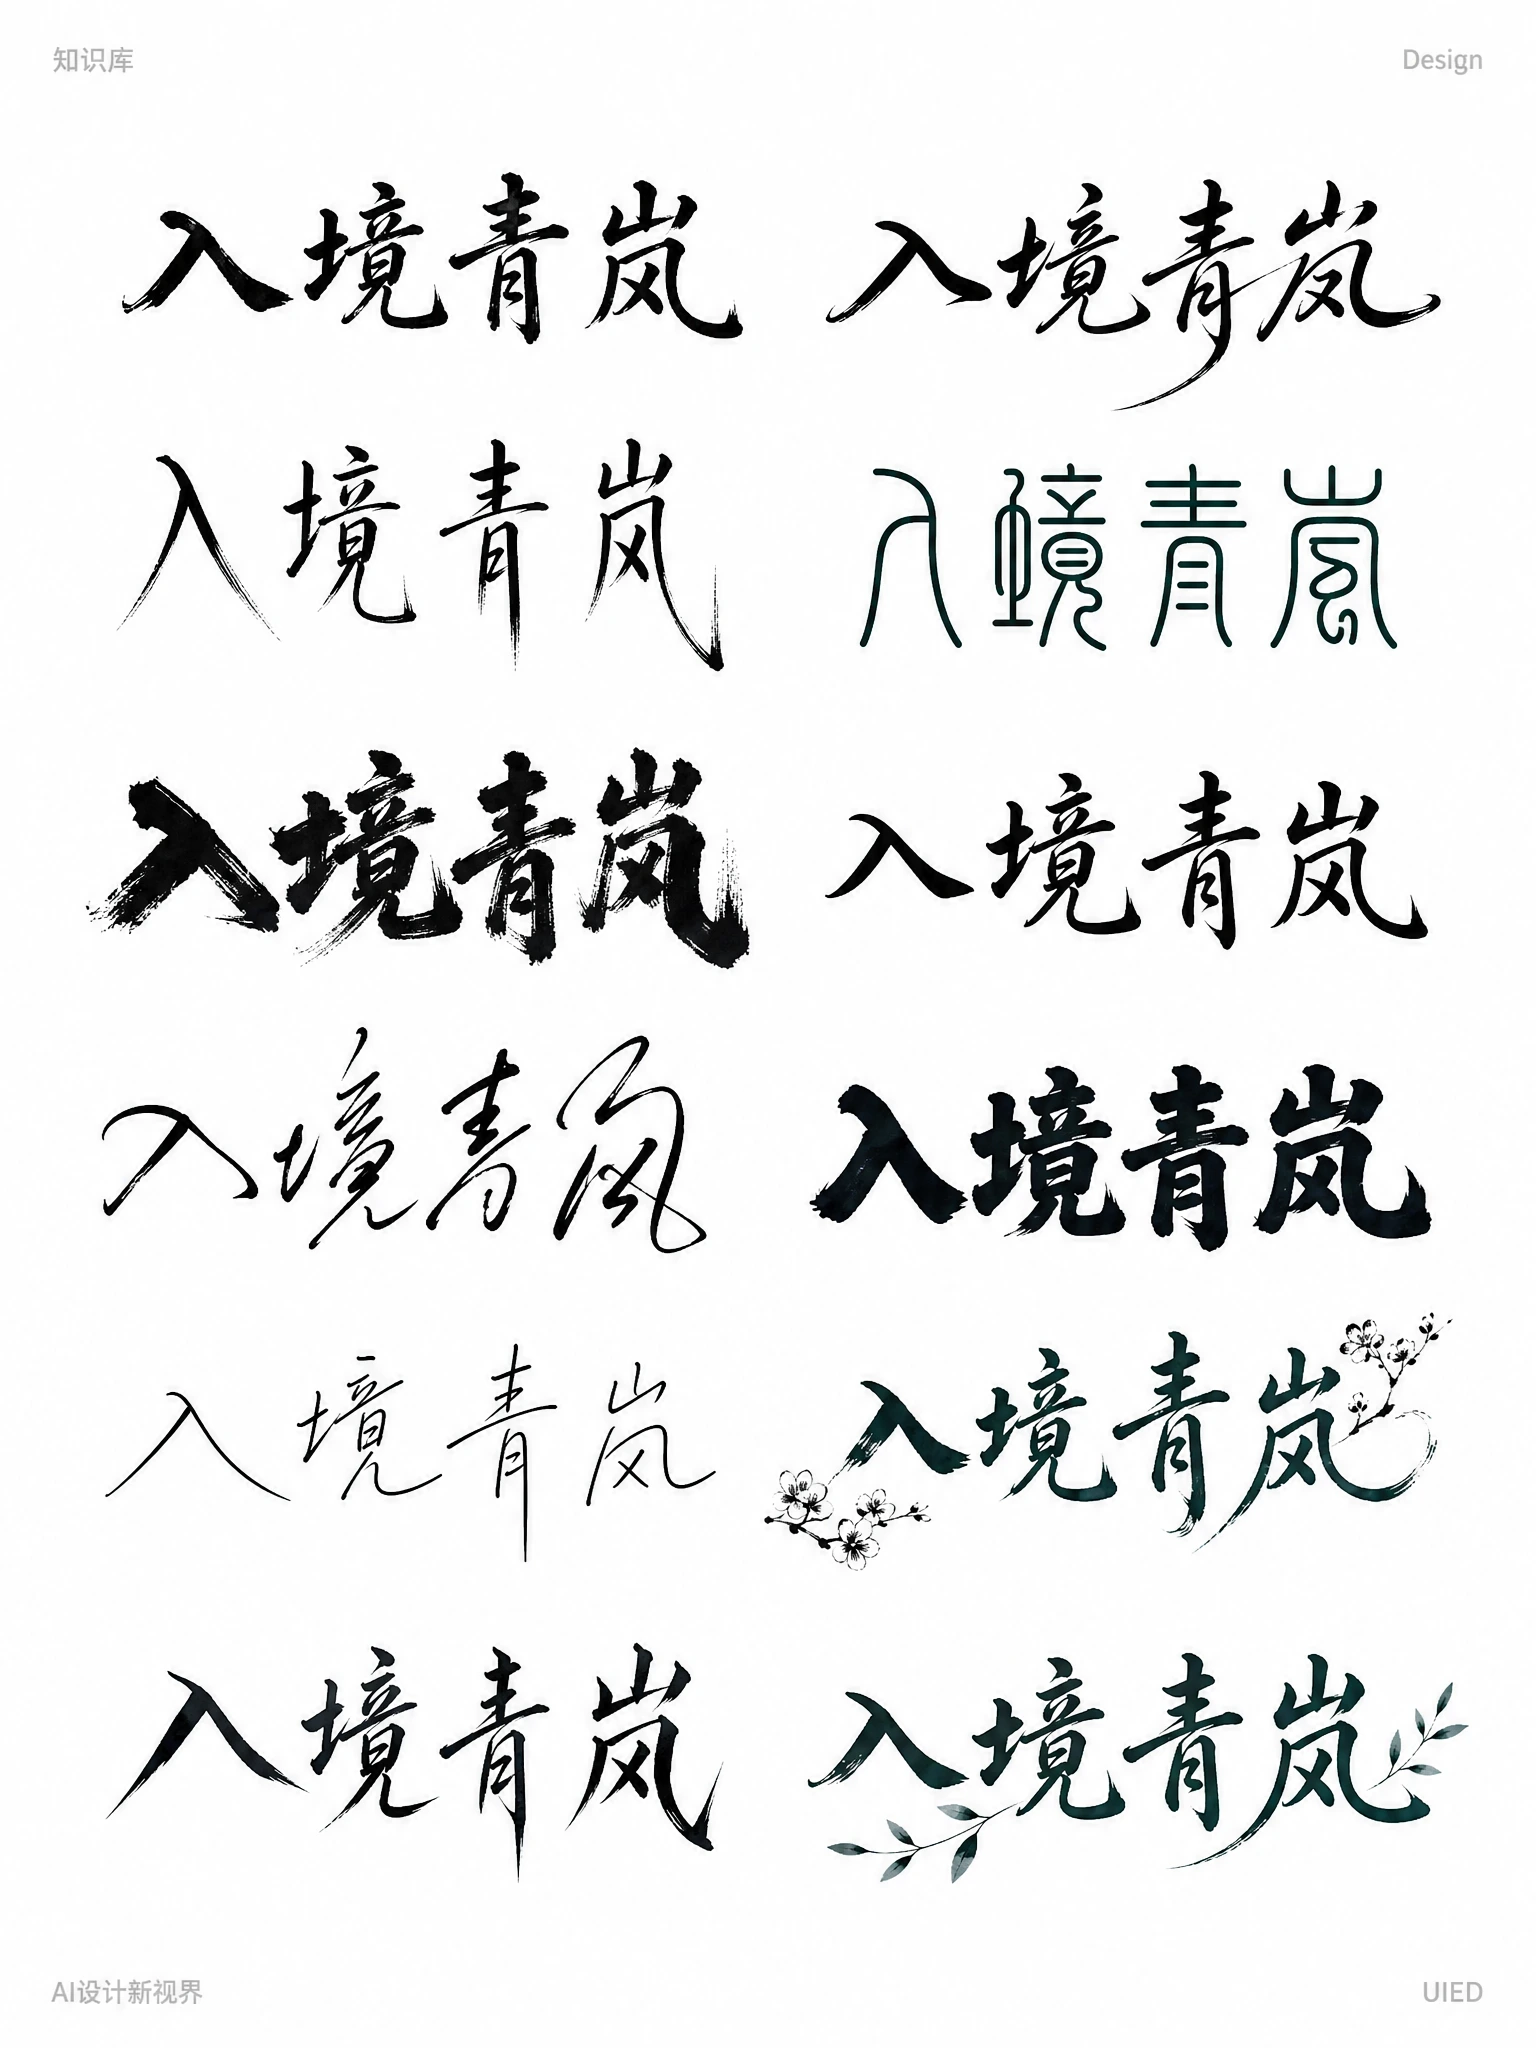 知识库 Design
入境青岚 入境青岚
入境青岚 入境青岚
入境青岚 入境青岚
入境青岚 入境青岚
入境青岚 入境青岚
入境青岚 入境青岚
AI设计新视界 UIED